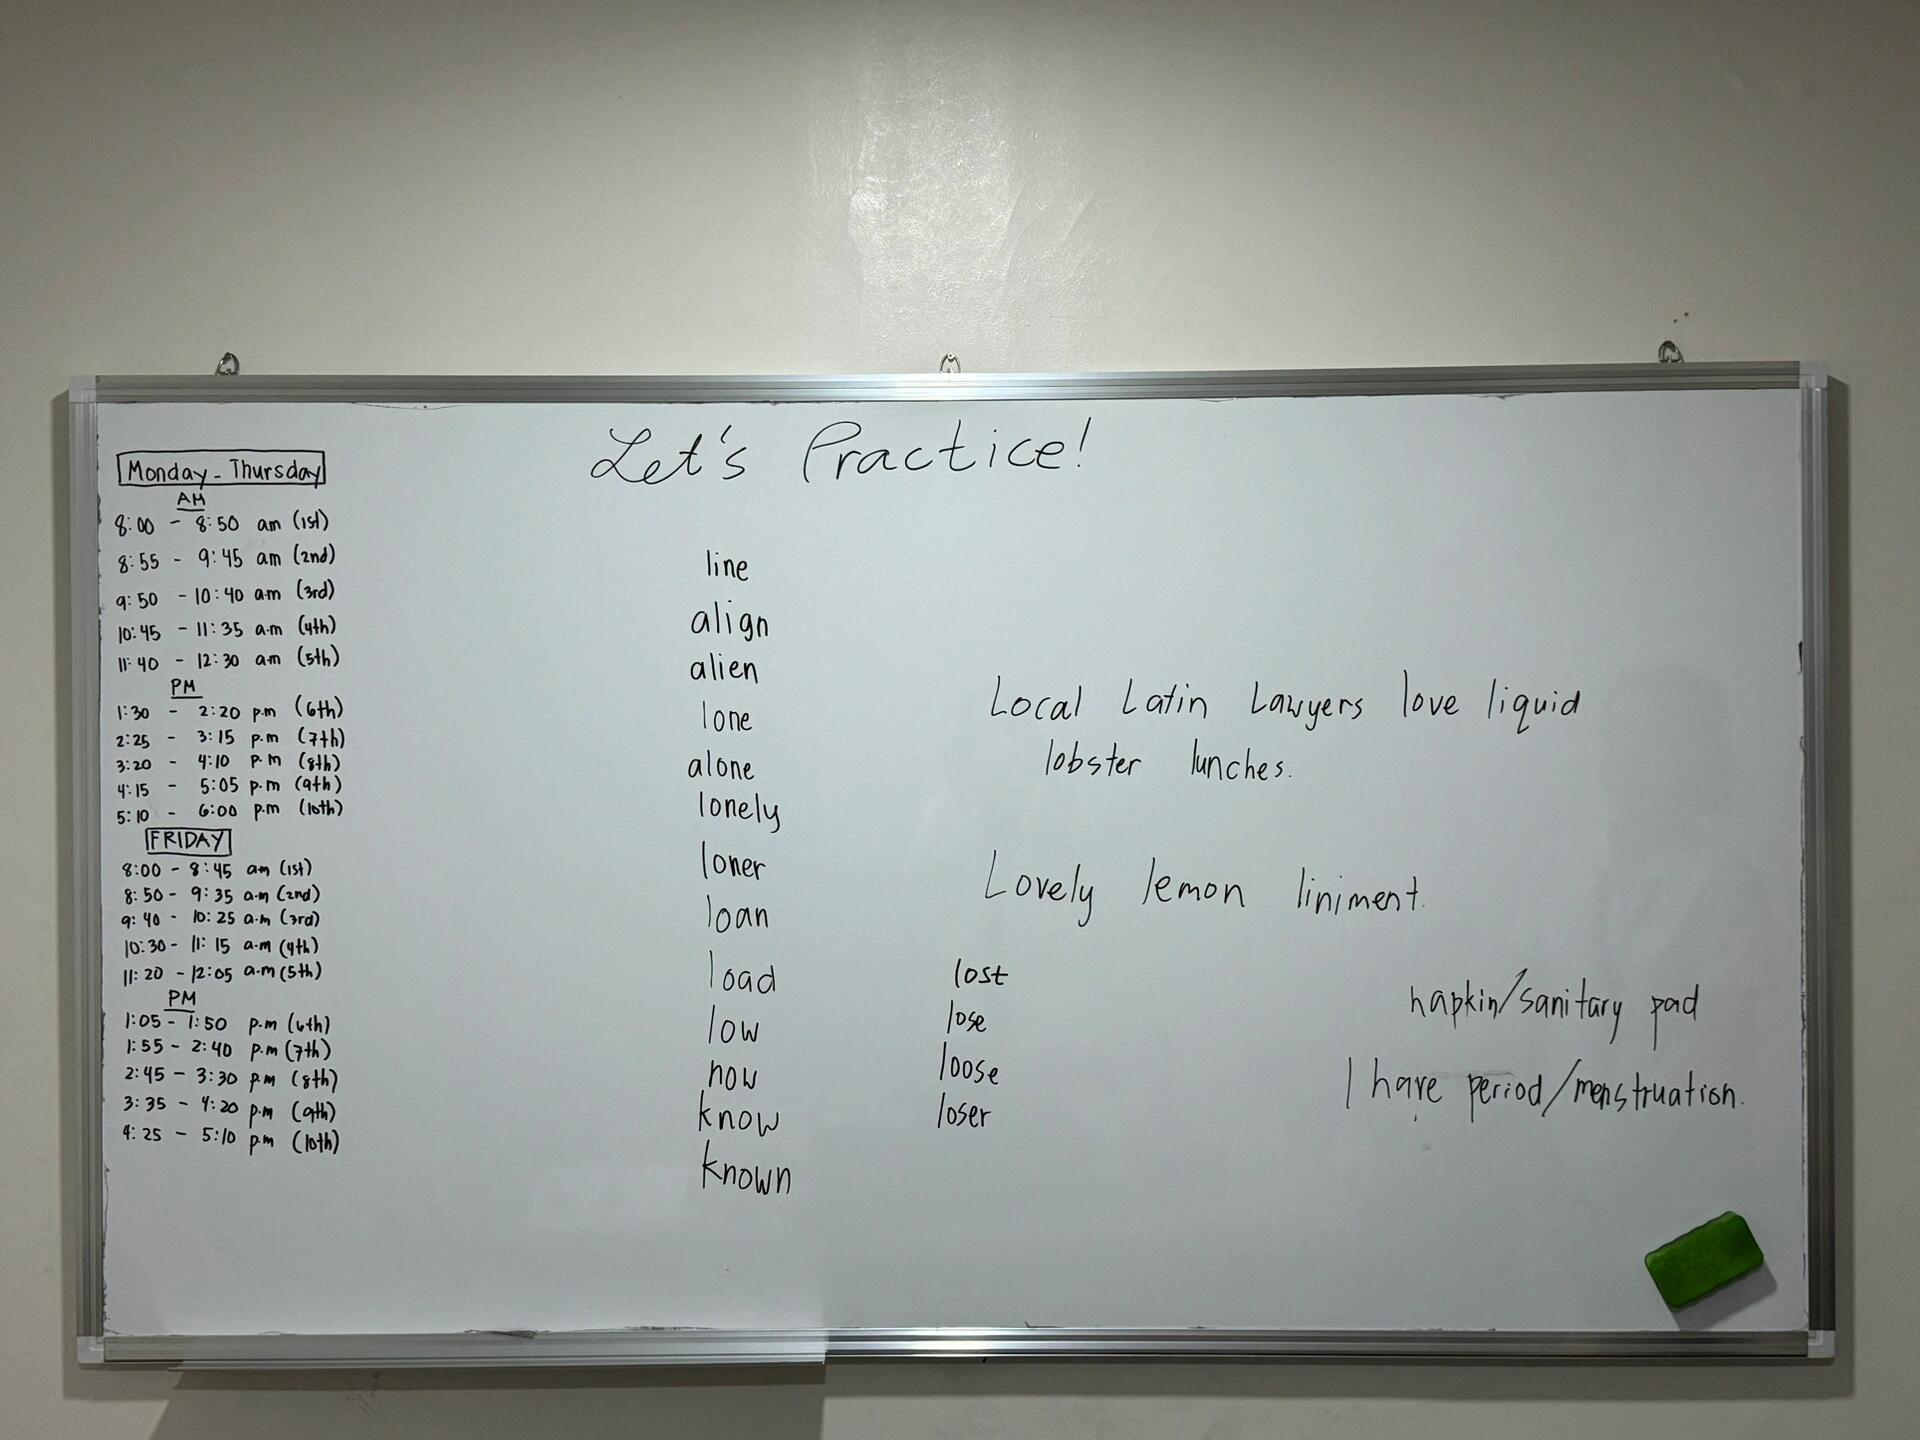 Let's Practice!
Monday - Thursday
AM
8:00 - 8:50 am (1st)
8:55 - 9:45 am (2nd)
9:50 - 10:40 a.m (3rd)
10:45 - 11:35 a.m (4th)
11:40 - 12:30 a.m (5th)
PM
1:30 - 2:20 p.m (6th)
2:25 - 3:15 p.m (7th)
3:20 - 4:10 p.m (8th)
4:15 - 5:05 p.m (9th)
5:10 - 6:00 p.m (10th)
FRIDAY
8:00 - 8:45 am (1st)
8:50 - 9:35 a.m (2nd)
9:40 - 10:25 a.m (3rd)
10:30 - 11:15 a.m (4th)
11:20 - 12:05 a.m (5th)
PM
1:05 - 1:50 p.m (6th)
1:55 - 2:40 p.m (7th)
2:45 - 3:30 p.m (8th)
3:35 - 4:20 p.m (9th)
4:25 - 5:10 p.m (10th)
line
align
alien
lone
alone
lonely
loner
loan
load
low
now
know
known
lost
lose
loose
loser
Local Latin Lawyers love liquid
lobster lunches.
Lovely lemon liniment.
napkin/sanitary pad
I have period/menstruation.